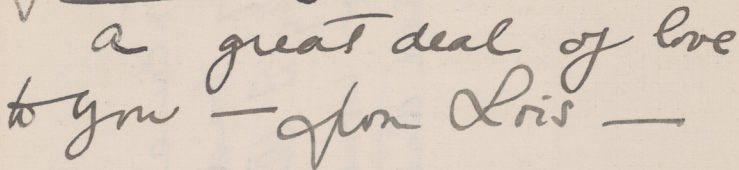 a great deal of love
to you — from Lois —